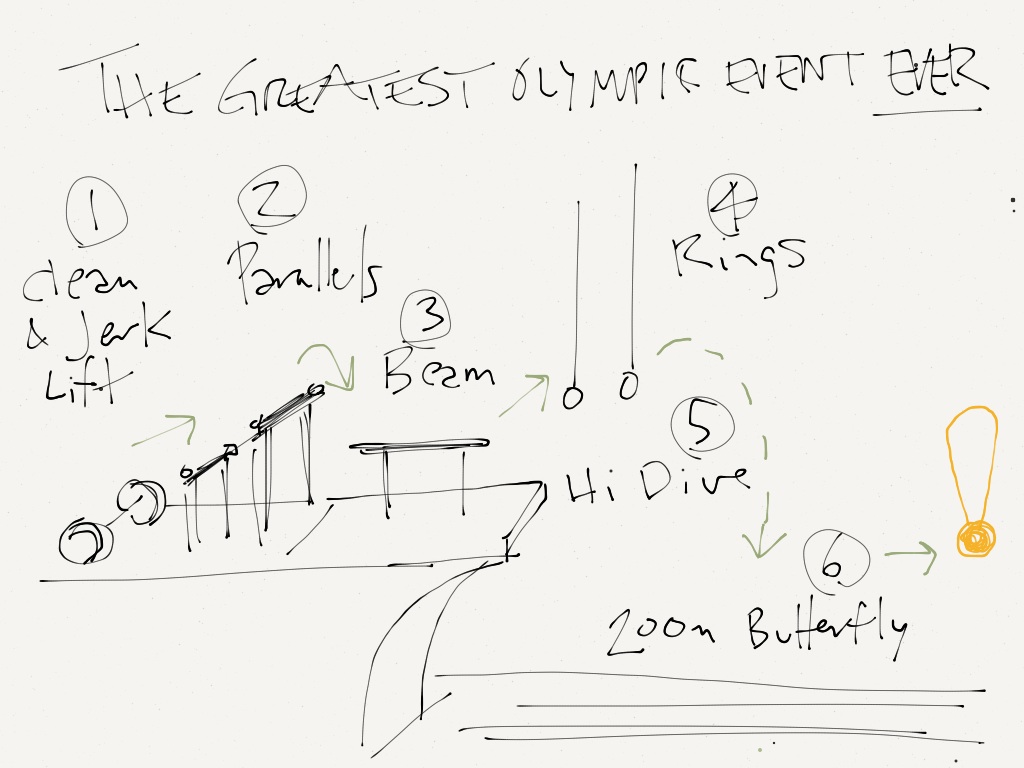 THE GREATEST OLYMPIC EVENT EVER
1
clean
& Jerk
Lift
2
Parallels
3
Beam
4
Rings
5
Hi Dive
6
200m Butterfly